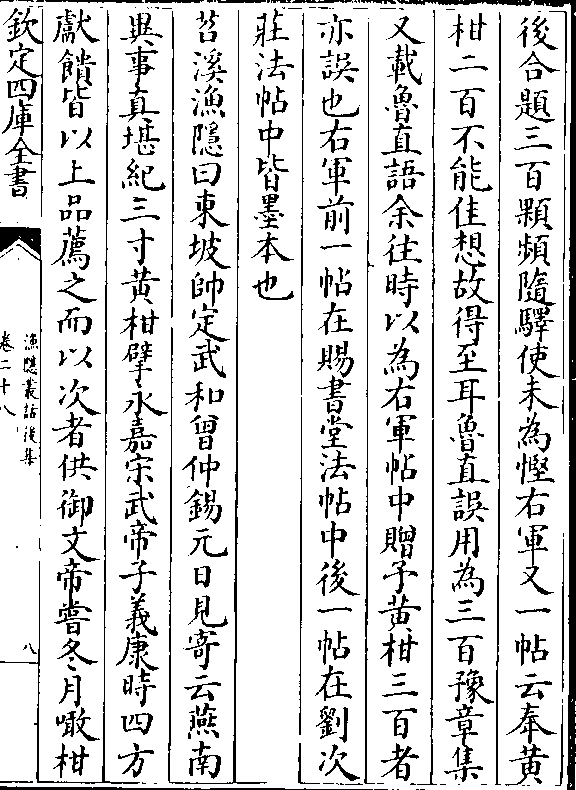 後合題三百顆頻隨驛使未為慳右軍又一帖云奉黄
柑二百不能佳想故得至耳魯直誤用為三百豫章集
又載魯直語余往時以為右軍帖中贈子黄柑三百者
亦誤也右軍前一帖在賜書堂法帖中後一帖在劉次
莊法帖中皆墨本也
苕溪漁隠曰東坡帥定武和曾仲錫元日見寄云燕南
異事真堪紀三寸黄柑擘永嘉宋武帝子義康時四方
獻饋皆以上品薦之而以次者供御文帝嘗冬月噉柑
欽定四庫全書
漁隱叢話後集
卷二十八
八